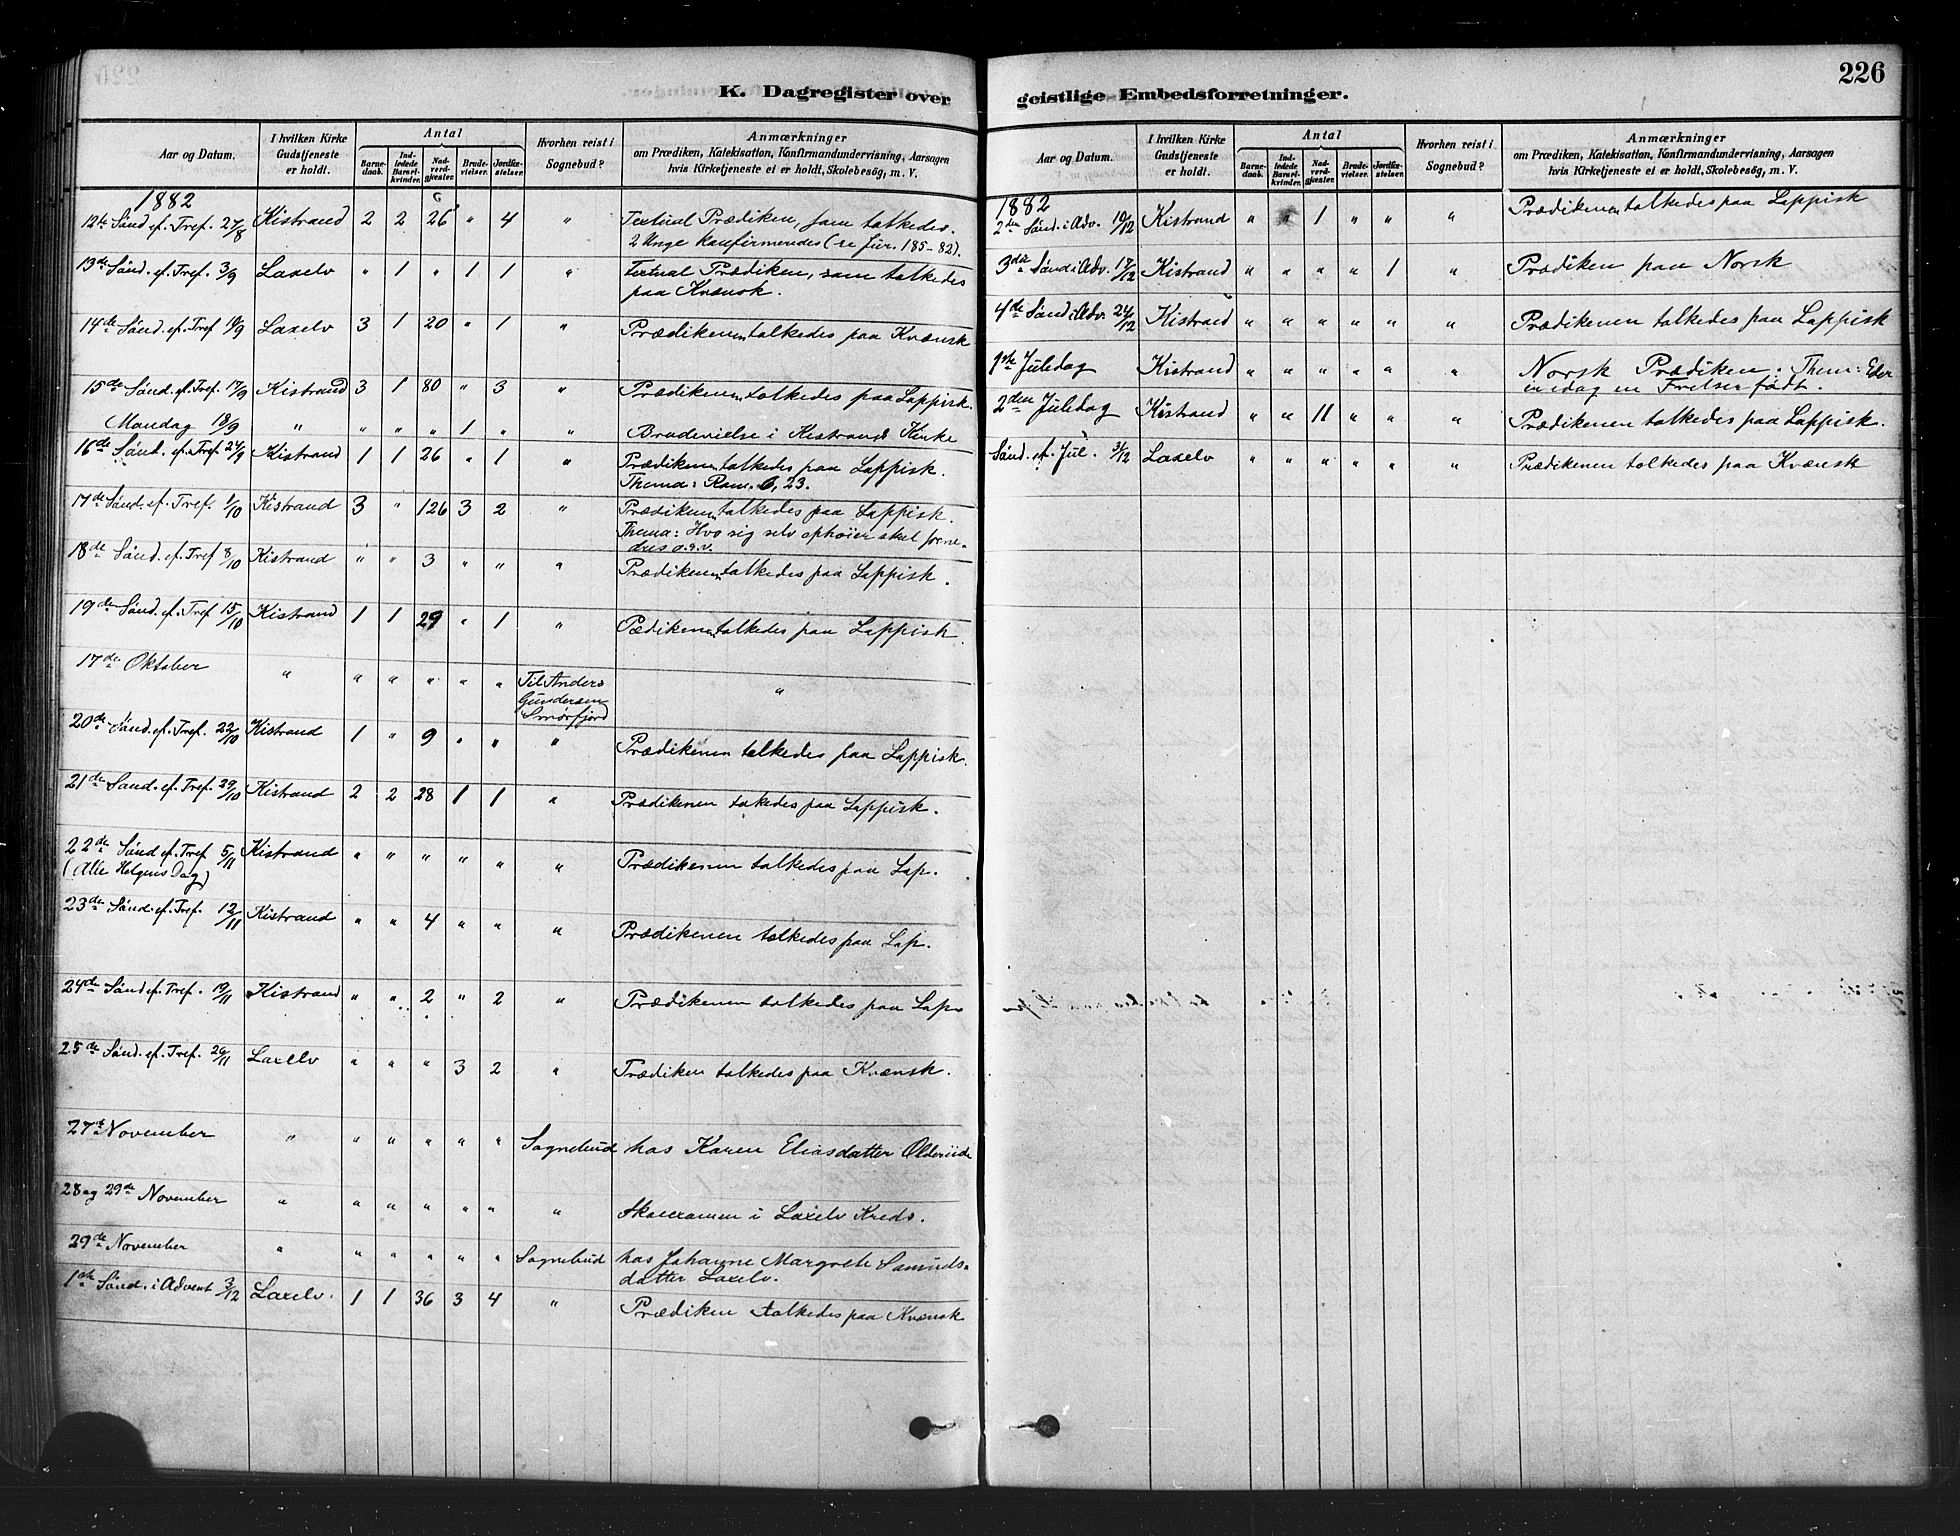 K. Dagregister over
Aar og Datum. | I hvilken Kirke Gudstjeneste er holdt. | Antal | Barnedaab. | Indledede Barselkvinder. | Nadverdgjæster. | Brudevielser. | Jordfæstelser. | Hvorhen reist i Sognebud? | Anmærkninger om Prædiken, Katekisation, Konfirmandundervisning, Aarsagen hvis Kirketjeneste ei er holdt, Skolebesøg, m. V.
1882
12te Sønd. ef. Tref. 27/8 Kistrand 2 2 26 " 4 " Textual Prædiken, som tolkedes.
2 Unge konfirmeredes (se Jur. 185-82).
13de Sønd. ef. Tref. 3/9 Laxelv " 1 " 1 1 " Textual Prædiken, som tolkedes
paa Kvænsk.
14de Sønd. ef. Tref 10/9 Laxelv 3 1 20 " 1 " Prædikenen tolkedes paa Kvænsk
15de Sønd. ef. Tref. 17/9 Kistrand 3 1 80 " 3 " Prædikenen tolkedes paa Lappisk.
Mandag 18/9 " " " " 1 " " Brudevielse i Kistrand Kirke
16de Sønd. ef. Tref 24/9 Kistrand 1 1 26 " 1 " Prædikenen tolkedes paa Lappisk.
Thema: Rom. 6, 23.
17de Sønd. ef. Tref. 1/10 Kistrand 3 " 126 3 2 " Prædikenen tolkedes paa Lappisk.
Thema: Hvo sig selv ophøier skal forne-
dres o.s.v.
18de Sønd. ef. Tref 8/10 Kistrand " " 3 " " " Prædikenen tolkedes paa Lappisk.
19de Sønd. ef. Tref 15/10 Kistrand 1 1 29 " 1 " Pædikenen tolkedes paa Lappisk.
17de Oktober " " " " " " Til Anders
Gundersen
Smørfjord "
20de Sønd. ef. Tref. 22/10 Kistrand 1 " 9 " " " Prædikenen tolkedes paa Lappisk.
21de Sønd. ef. Tref. 29/10 Kistrand 2 2 28 1 1 " Prædikenen tolkedes paa Lappisk.
22de Sønd ef. Tref 5/11 Kistrand " " " " " " Prædikenen tolkedes paa Lap.
(Alle Helgens Dag)
23de Sønd. ef. Tref. 12/11 Kistrand " " 4 " " " Prædikenen tolkedes paa Lap.
24de Sønd ef. Tref. 19/11 Kistrand " " 2 " 2 " Prædikenen tolkedes paa Lap.
25de Sønd. ef. Tref. 26/11 Laxelv " " " 3 2 " Prædiken tolkedes paa Kvænsk.
27de November " " " " " " Sognebud hos Karen Eliasdatter
28 og 29de November " " " " " " " Skoleexamen i Laxelv Kreds.
29de November " " " " " " Sognebud hos Johanne Margrete Samuels-
datter Laxelv.
1ste Sønd. i Advent 3/12 Laxelv. 1 1 36 3 4 " Prædiken tolkedes paa Kvænsk
226
geistlige Embedsforretninger.
Aar og Datum. | I hvilken Kirke Gudstjeneste er holdt. | Antal | Barnedaab. | Indledede Barselkvinder. | Nadverdgjæster. | Brudevielser. | Jordfæstelser. | Hvorhen reist i Sognebud? | Anmærkninger om Prædiken, Katekisation, Konfirmandundervisning, Aarsagen hvis Kirketjeneste ei er holdt, Skolebesøg, m. V.
1882
2den Sønd. i Adv. 10/12 Kistrand " " 1 " " " Prædikenen tolkedes paa Lappisk
3die Sønd i Adv. 17/12 Kistrand " " " " 1 " Prædiken paa Norsk
4de Sønd i Adv. 24/12 Kistrand " " " " " " Prædikenen tolkedes paa Lappisk
1ste Juledag Kistrand " " " " " " Norsk Prædiken. Thema: Eder
er idag en Frelser født.
2den Juledag Kistrand " " 11 " " " Prædikenen tolkedes paa Lappisk.
Sønd. ef. Jul. 31/12 Laxelv " " " " " " Prædikenen tolkedes paa Kvænsk